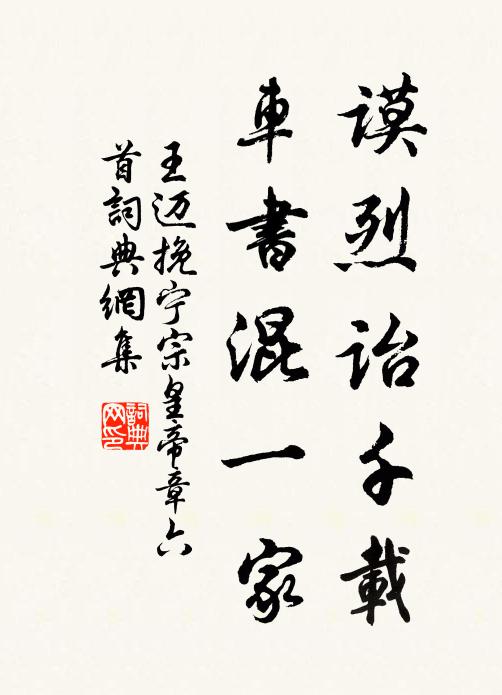 謨烈詒千載
車書混一家
王迈挽宁宗皇帝章六
首詞典網集
詞典
网印